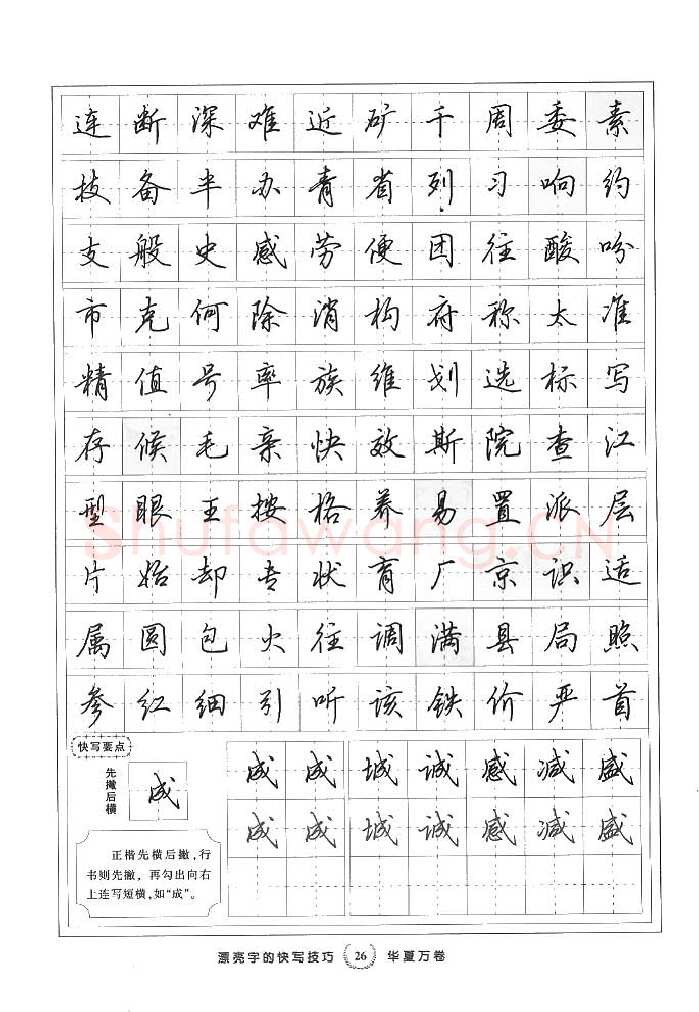 连断深难近矿千周委素
技备半办青省列习响约
支般史感劳便团往酸吩
市克何除消构府称太准
精值号率族维划选标写
存候毛亲快效斯院查江
型眼王按格养易置派层
片始却专状育厂京识适
属圆包火往调满县局照
参红细引听该铁价严首
快写要点
先撇后横
成
正楷先横后撇,行
书则先撇,再勾出向右
上连写短横,如“成”。
成成城诚感减盛
成成城诚感减盛
shufawang.CN
漂亮字的快写技巧 26 华夏万卷